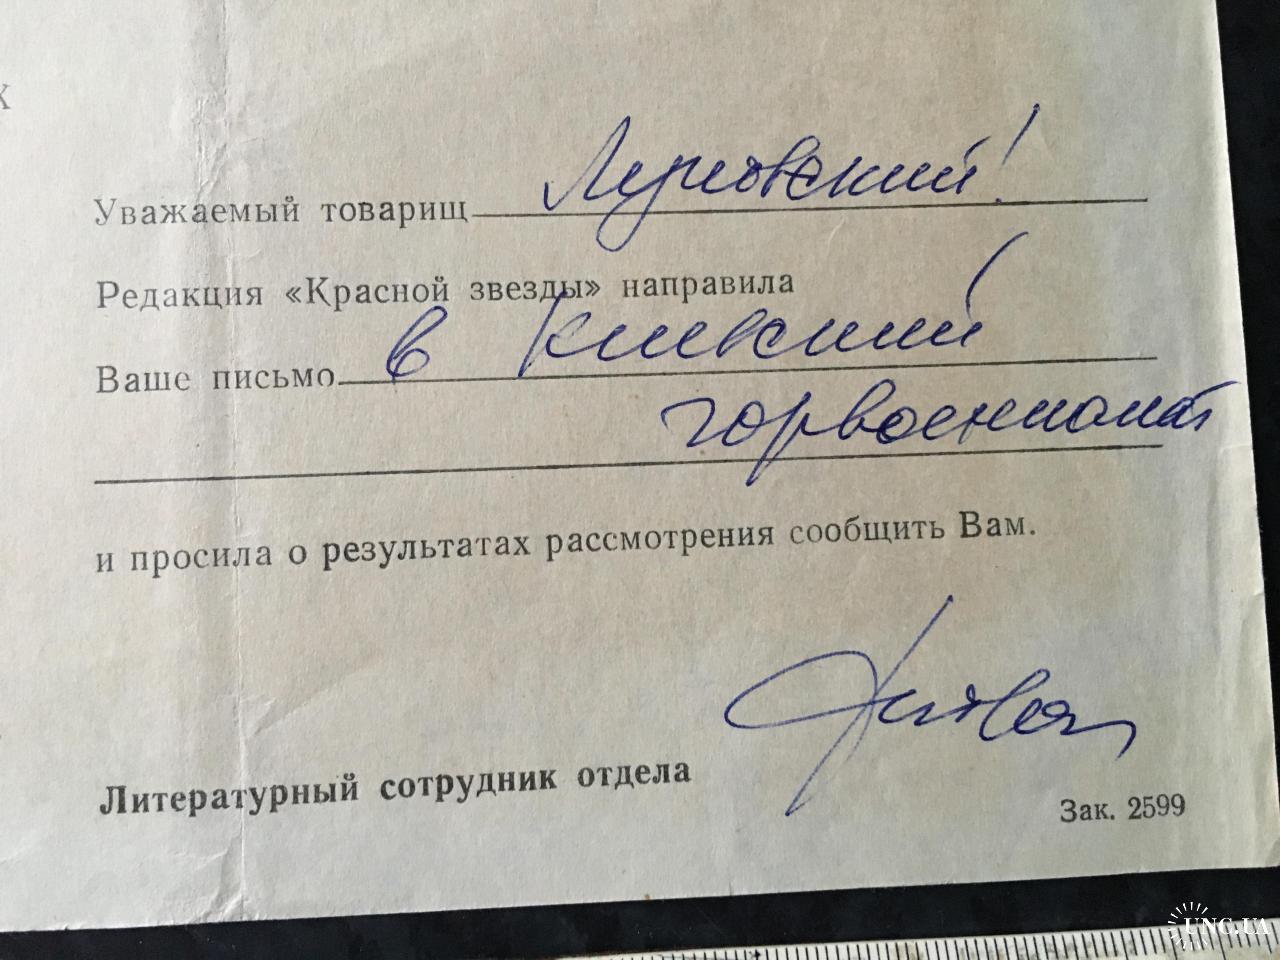 Х
Уважаемый товарищ
Редакция «Красной звезды» направила
Ваше письмо в Киевский
горвоенкомат
и просила о результатах рассмотрения сообщить Вам.
Литературный сотрудник отдела
Зак. 2599
UNC.UA